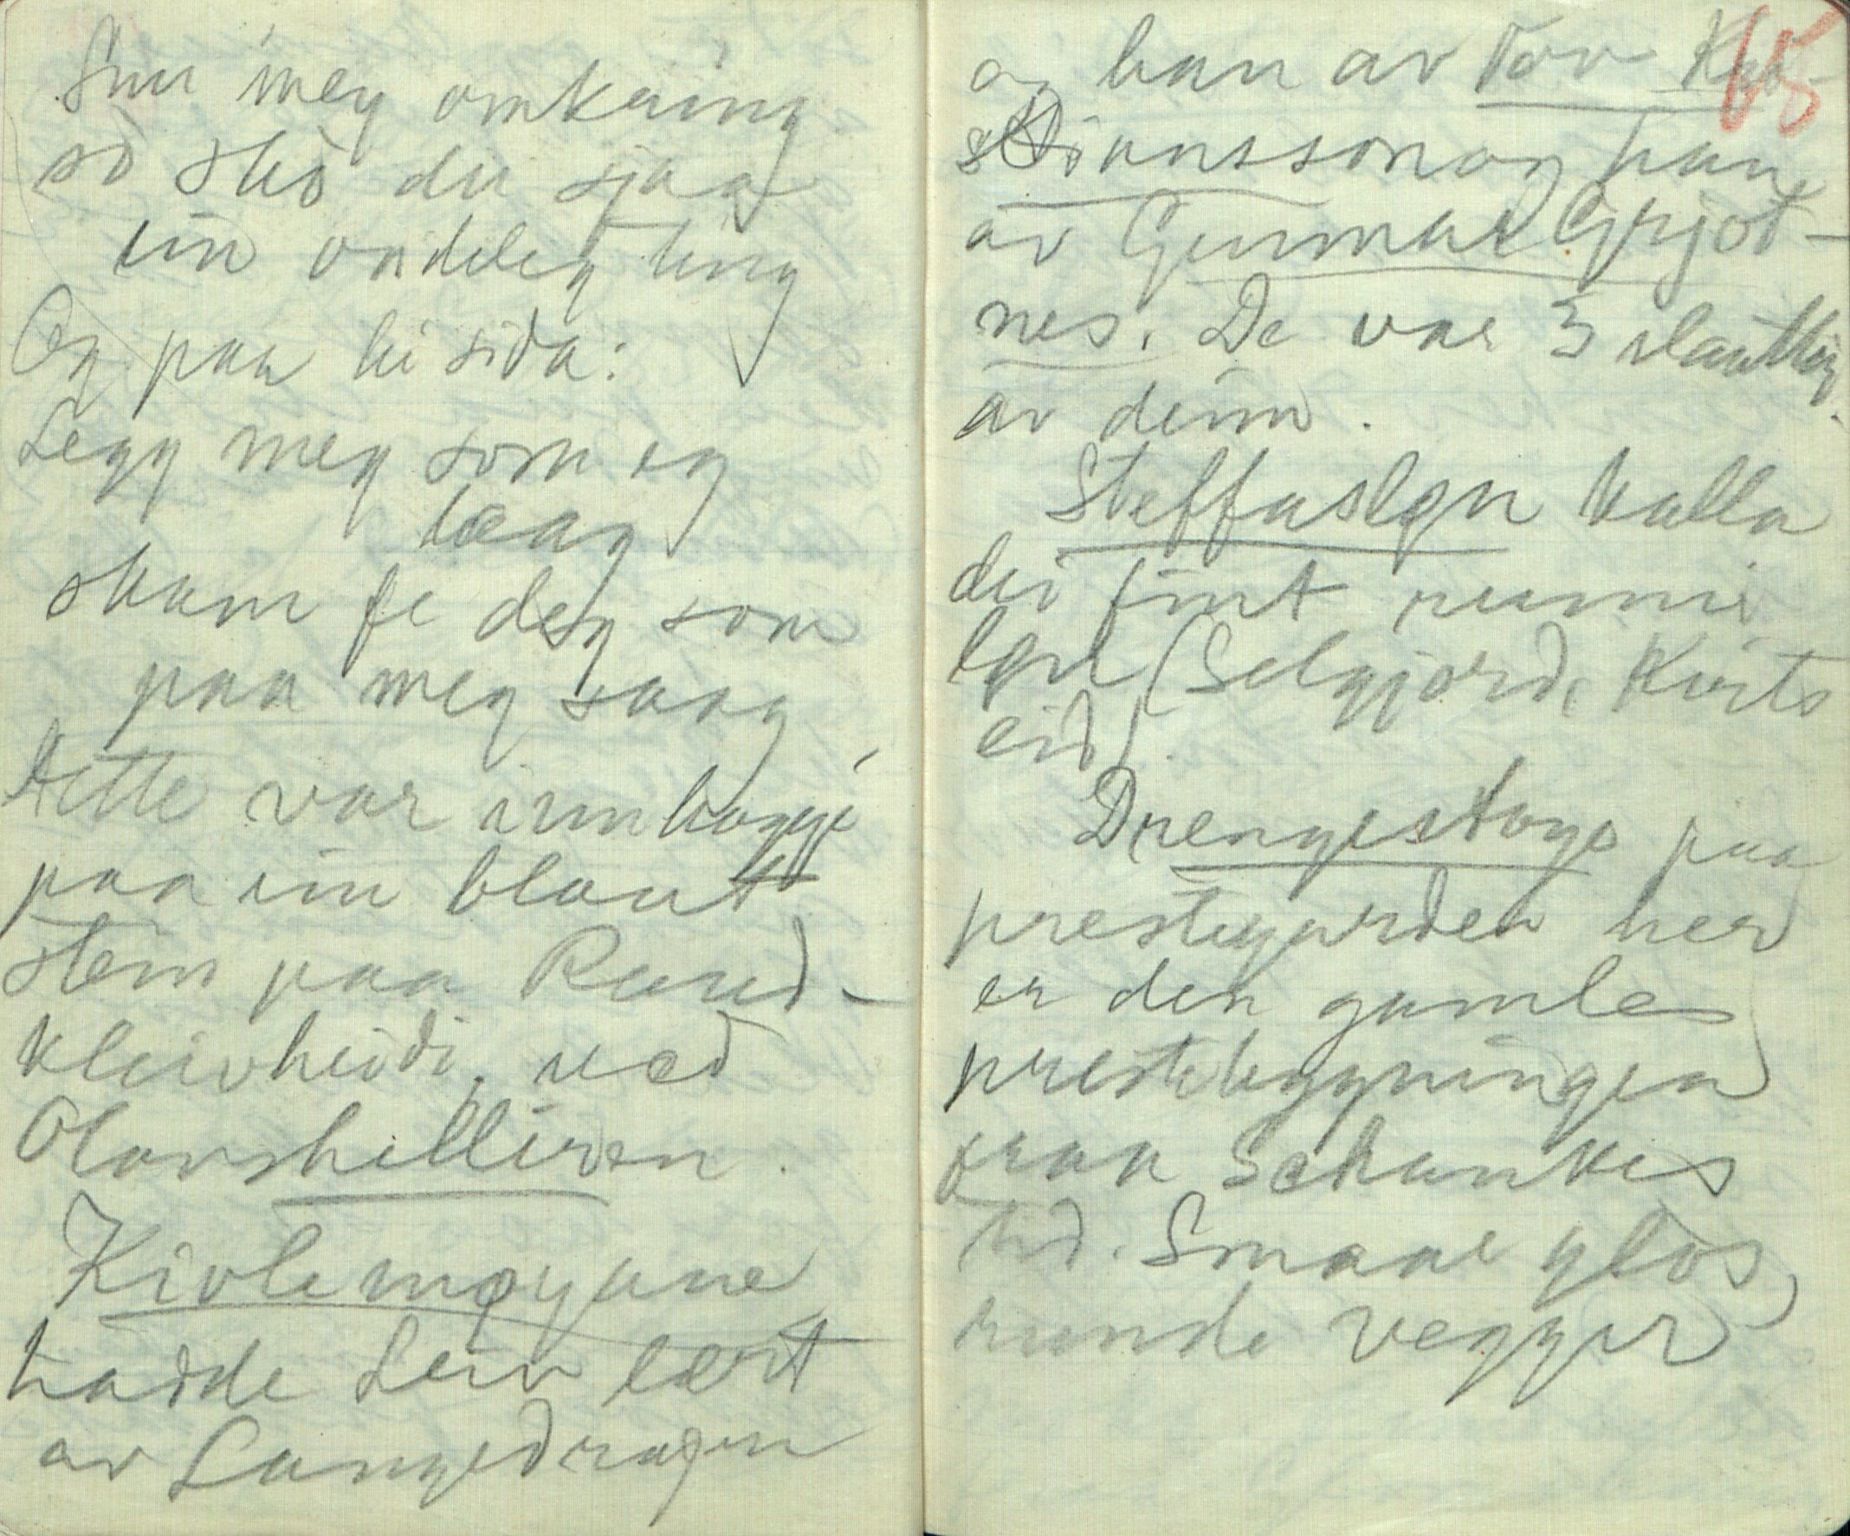 Snu meg omkring
so sko du sjaa
ein undeleg ting
Og paa hi sida:
Legg meg som eg
laag
skam fe deg som
paa meg saag
Dette var innhoggje
paa ein blaut
stein paa Rund-
kleivheidi, ved
Olavshelliren.
Kivlemøyane
hadde Leiv lært
av Langedragen
65
og han av Tov
som og han
av Gunnar Grjot-
nes. De var 3 slaattar
av deim.
Steffasløn kalla
dei eint rumi
løn (Selgjord, Kvits
eid).
Drengestoga paa
prestegarden her
er den gamle
prestebygningen
fraa Schankes
tid. Smaae glos,
runde vegger